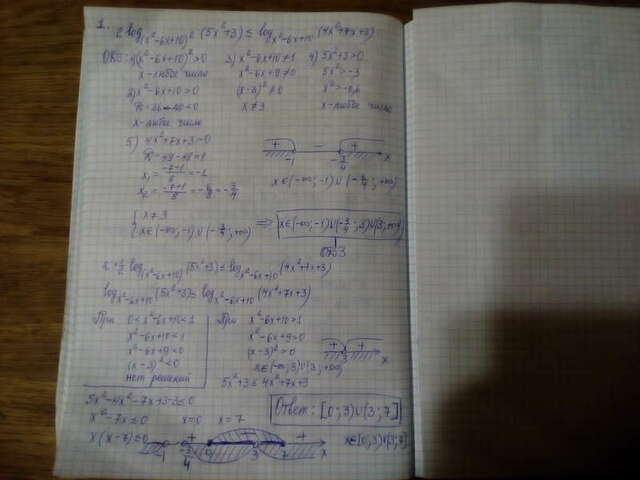 1. 2 log_(x²-6x+10)² (5x²+3) ≤ log_x²-6x+10 (4x²+7x+3)
1) (x²-6x+10)²>0 3) x²-6x+10≠1 4) 5x²+3>0
x-любое число x²-6x+9≠0 5x²>-3
2) x²-6x+10>0 (x-3)²≠0 x²>-0,6
D=36-40<0 x≠3 x-любое число
x-любое число
5) 4x²+7x+3>0
D=49-48=1 + - +
x₁=(-7-1)/8=-1 -1 -3/4 x
x₂=(-7+1)/8=-6/8=-3/4 x∈(-∞;-1)∪(-3/4;+∞)
{ x≠3
{ x∈(-∞;-1)∪(-3/4;+∞) ⟹ x∈(-∞;-1)∪(-3/4;3)∪(3;+∞)
ОДЗ
2·1/2 log_(x²-6x+10) (5x²+3) ≤ log_x²-6x+10 (4x²+7x+3)
log_x²-6x+10 (5x²+3) ≤ log_x²-6x+10 (4x²+7x+3)
При 0<x²-6x+10<1
x²-6x+10<1
x²-6x+9<0
(x-3)²<0
нет решений
При x²-6x+10>1
x²-6x+9>0 + +
(x-3)²>0 3 x
x∈(-∞;3)∪(3;+∞)
5x²+3≤4x²+7x+3
5x²-4x²-7x+3-3≤0
x²-7x≤0 x=0 x=7
Ответ: [0;3)∪(3;7]
x(x-7)≤0 -1 -3/4 + 0 3 7 + x x∈[0;3)∪(3;7]